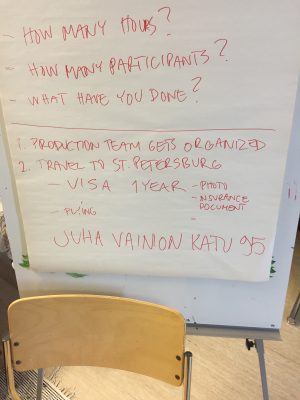 - HOW MANY HOURS?
- HOW MANY PARTICIPANTS?
- WHAT HAVE YOU DONE?
1. PRODUCTION TEAM GETS ORGANIZED
2. TRAVEL TO ST. PETERSBURG
- VISA 1 YEAR - PHOTO
- INSURANCE DOCUMENT
-
- FLYING
JUHA VAINION KATU 95